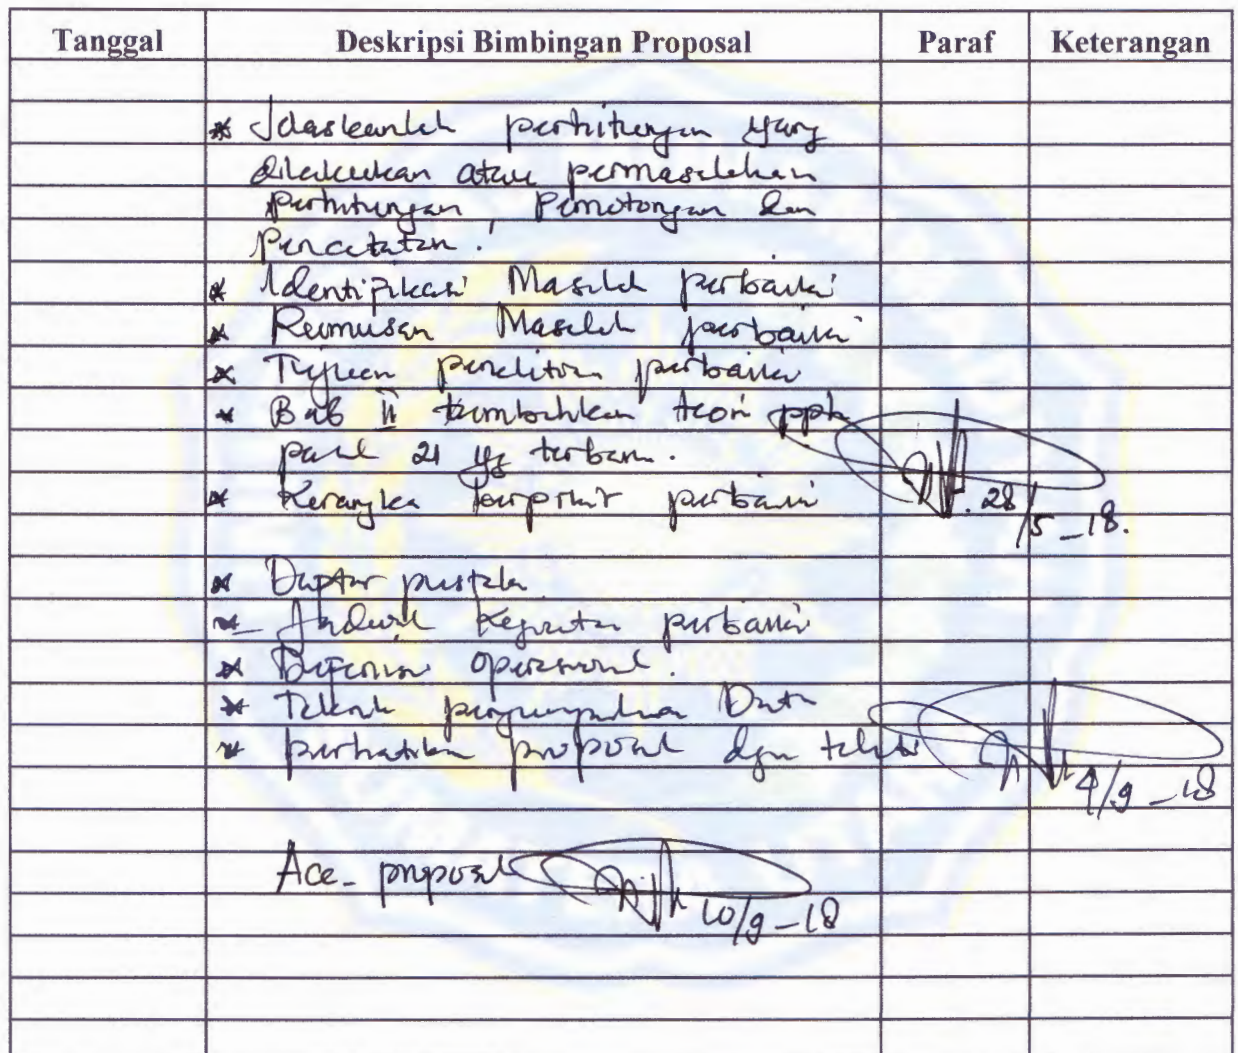 Tanggal Deskripsi Bimbingan Proposal Paraf Keterangan
* Jelaskanlah perhitungan yang
dilakukan atau permasalahan
perhitungan, Pemotongan dan
Pencatatan.
* Identifikasi Masalah perbaiki
* Rumusan Masalah perbaiki
* Tujuan penelitian perbaiki
* Bab II tambahkan teori pph
pasal 21 yg terbaru.
* Kerangka berpikir perbaiki
28/5-18.
* Daftar pustaka
* Jadwal Kegiatan perbaiki
* Definisi operasional.
* Teknik pengumpulan Data
* perhatikan proposal dgn teliti
4/9-18
Acc proposal
10/9-18